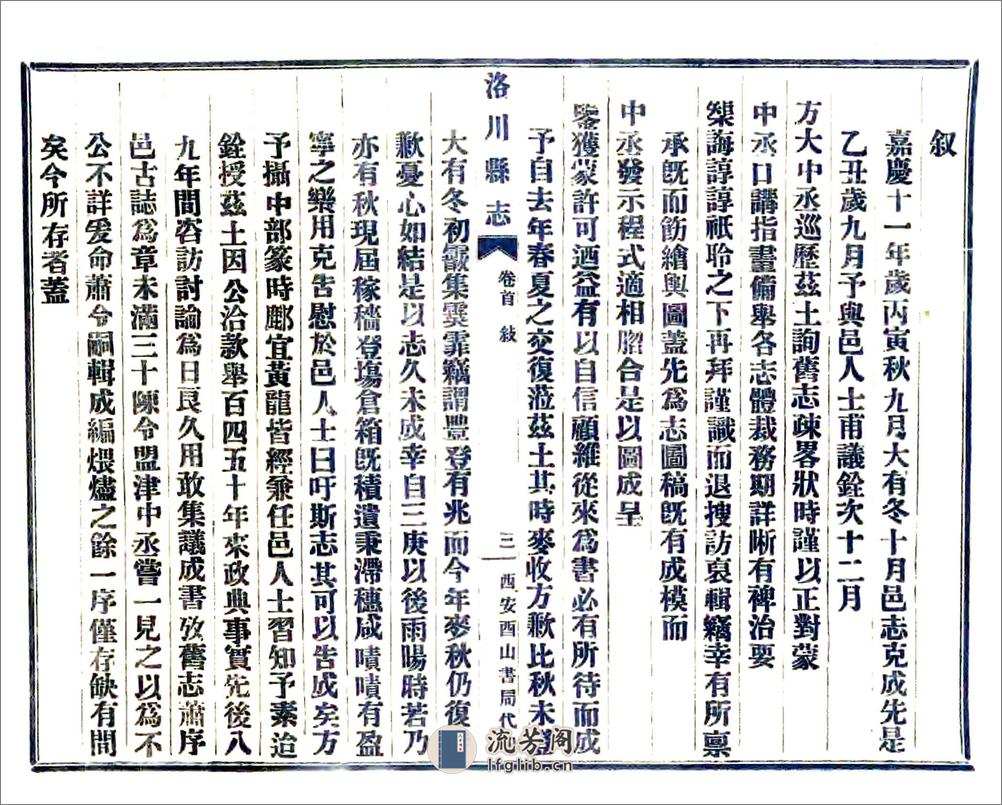 叙
嘉慶十一年歲丙寅秋九月大有冬十月邑志克成先是
乙丑歲九月予與邑人士甫議銓次十二月
方大中丞巡歷茲土詢舊志疎畧狀時謹以正對蒙
中丞口講指畫備舉各志體裁務期詳晰有裨治要
槼誨諄諄祇聆之下再拜謹識而退搜訪裒輯竊幸有所稟
承旣而筋繪輿圖蓋先為志圖稿旣有成模而
中丞發示程式適相脗合是以圖成呈
鑒獲蒙許可迺益有以自信顧維從來為書必有所待而成
予自去年春夏之交復蒞茲土其時麥收方歉比秋未
洛川縣志
卷首 敍
三
西安酉山書局代
大有冬初霰集霙霏竊謂豐登有兆而今年麥秋仍復
歉憂心如結是以志久未成幸自三庚以後雨暘時若乃
亦有秋現屆稼穡登塲倉箱旣積遺秉滯穗咸嘖嘖有盈
寧之樂用克告慰於邑人士曰吁斯志其可以告成矣方
予攝中部篆時鄜宜黃龍皆經兼任邑人士習知予素迨
銓授茲土因公洽款舉百四五十年來政典事實先後八
九年間咨訪討論為日艮久用敢集議成書攷舊志蕭序
邑古誌為章未滿三十陳令盟津中丞嘗一見之以為不
公不詳爰命蕭令嗣輯成編煨燼之餘一序僅存缺有間
矣今所存者蓋
流芳阁
lfglib.cn